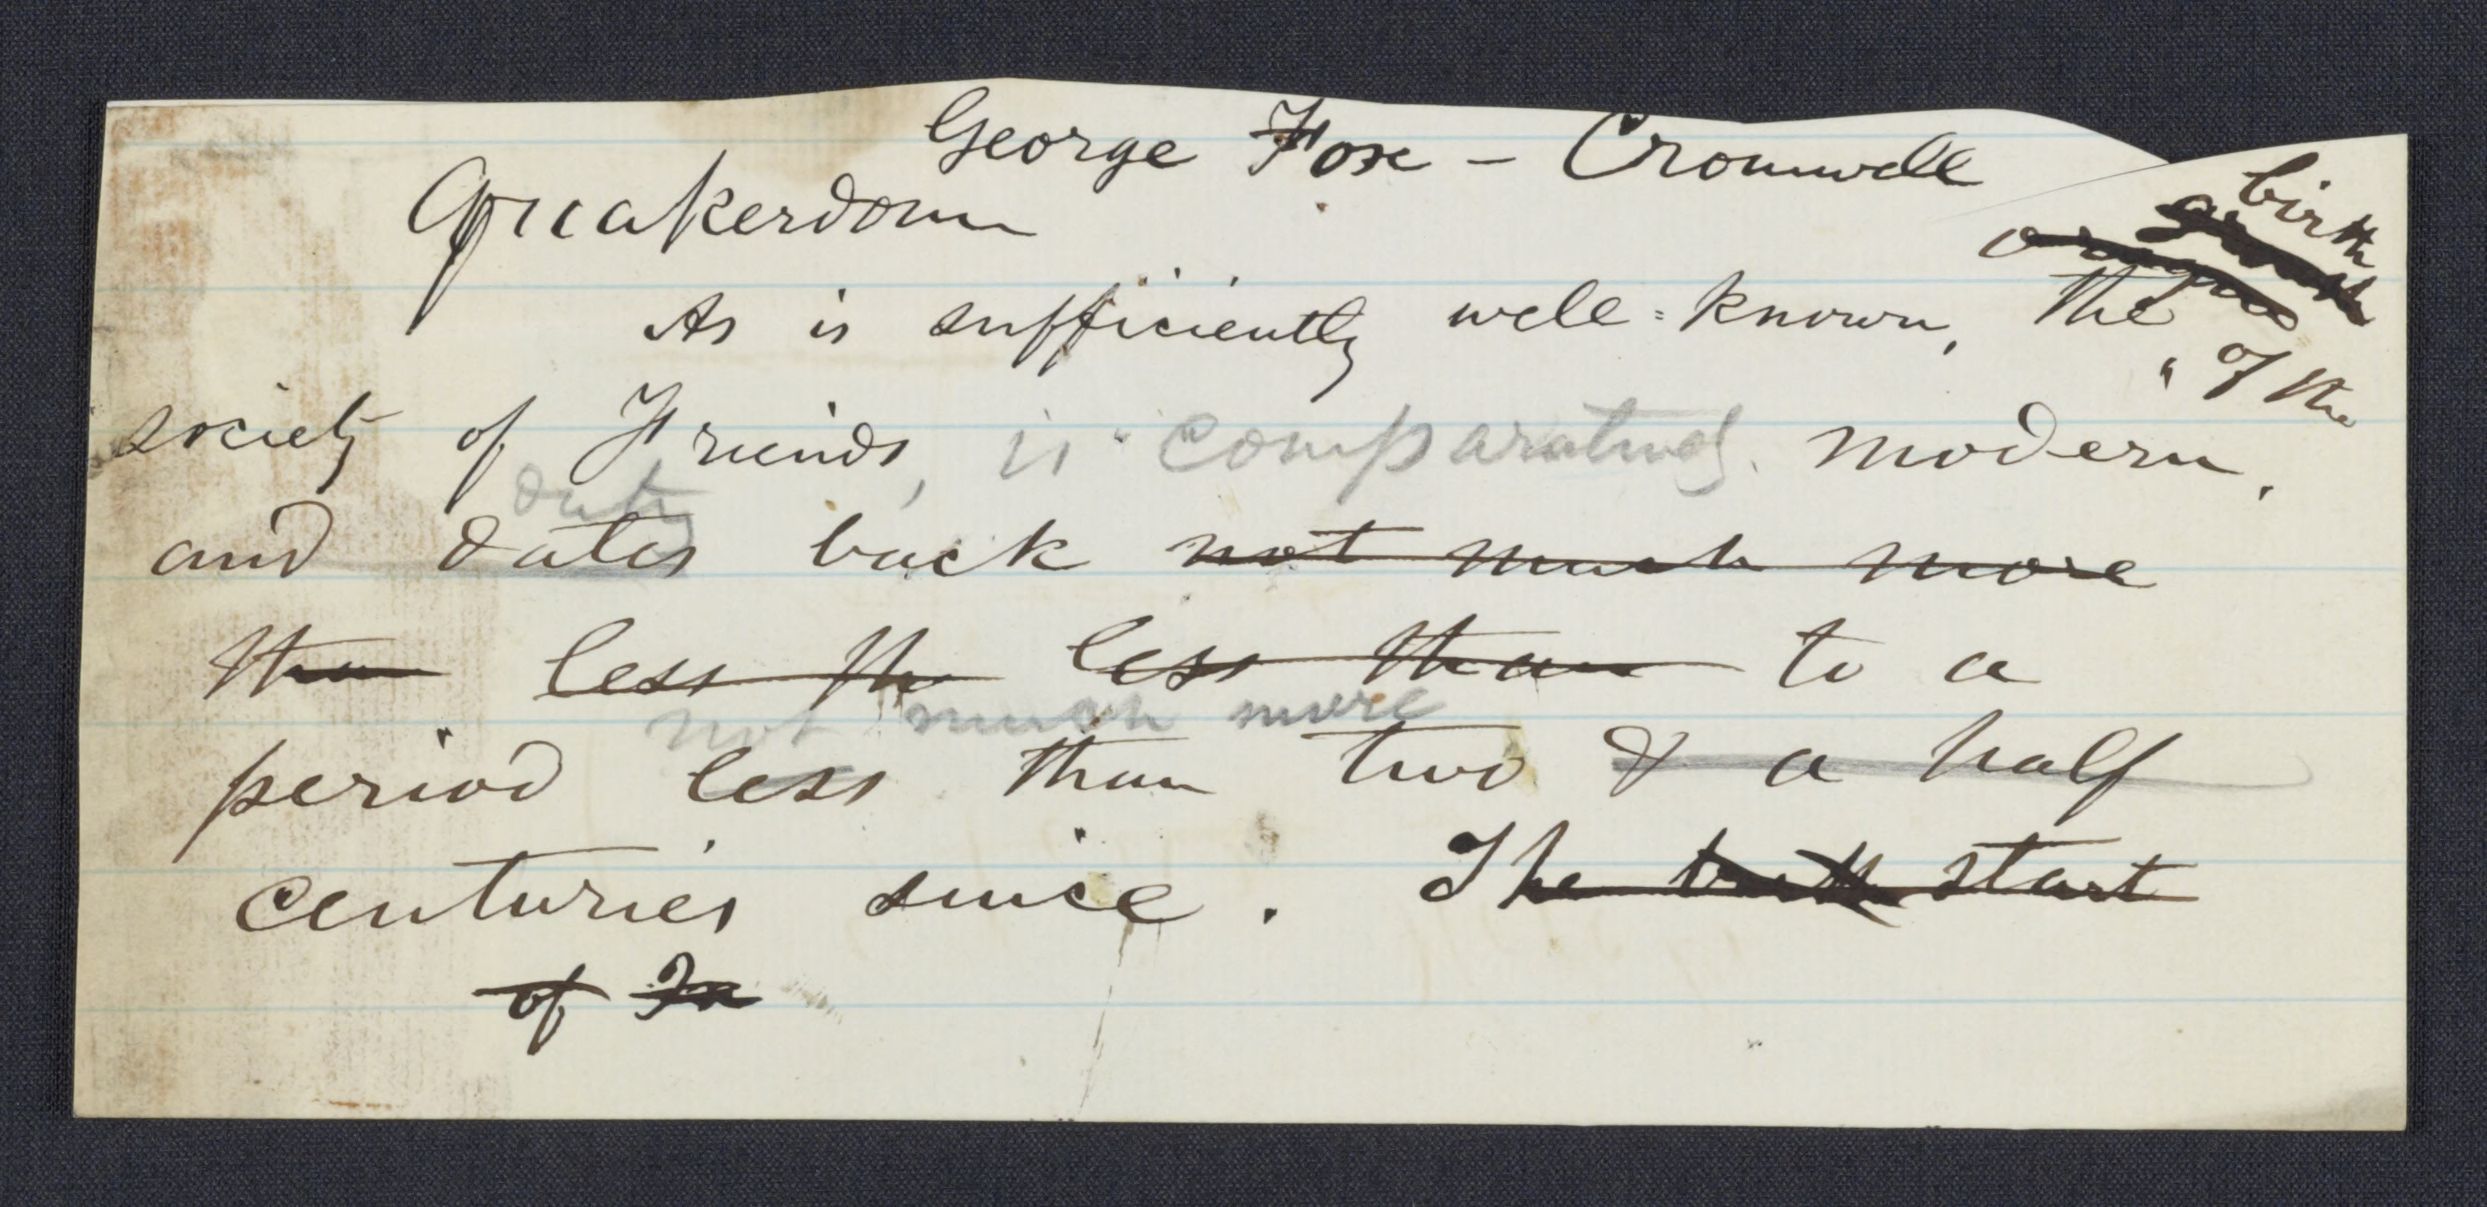 George Fox - Cromwell
Quakerdom
birth
growth
origin
As is sufficiently well-known, the
of the
society of Friends, is comparatively modern,
dating
and dates back not much more
than less th less than to a
not much more
period less than two & a half
centuries since. The birth start
of Fr